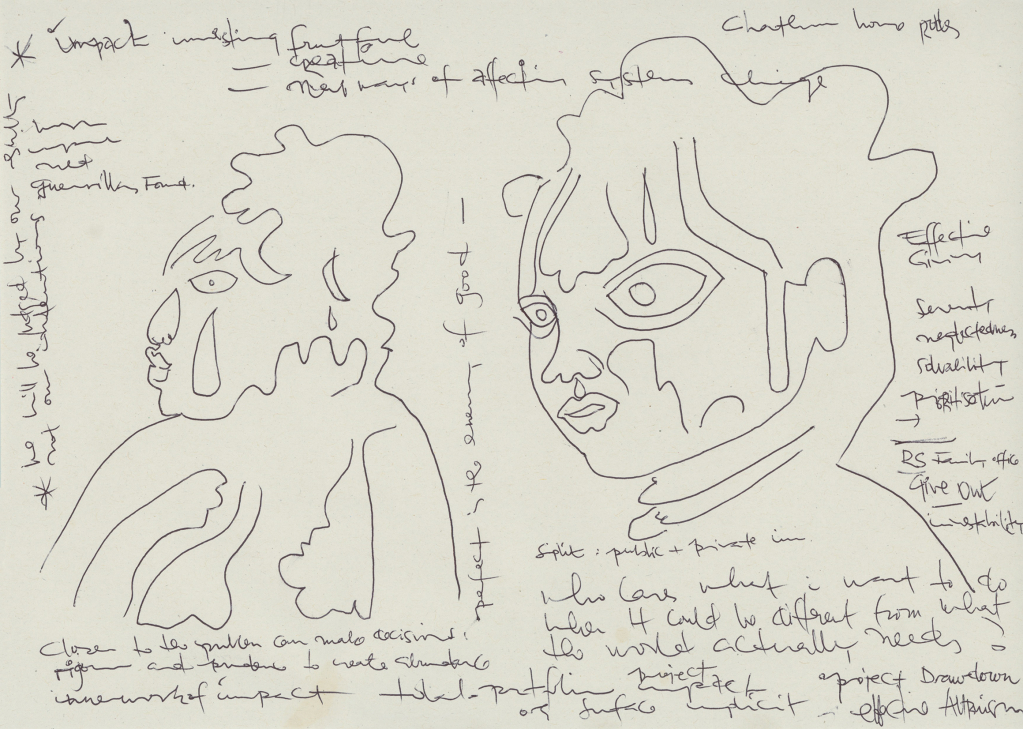 * impact investing fruitful
– creative
– new ways of affecting systems change
impact
net
Guerrilla Found.
* we will be judged by our
not our intentions
perfect is the enemy of good –
Effective
Giving
severity
neglectedness
solvability
prioritisation
→
RS Family office
Give Out
investibility
split: public + private inv
who cares what i want to do
when it could be different from what
the world actually needs?
Closer to the problem can make decisions.
rigour and prudence to create abundance
inner work of impact
total-portfolio impact
project
org surface implicit
project Drawdown
– effective Altruism